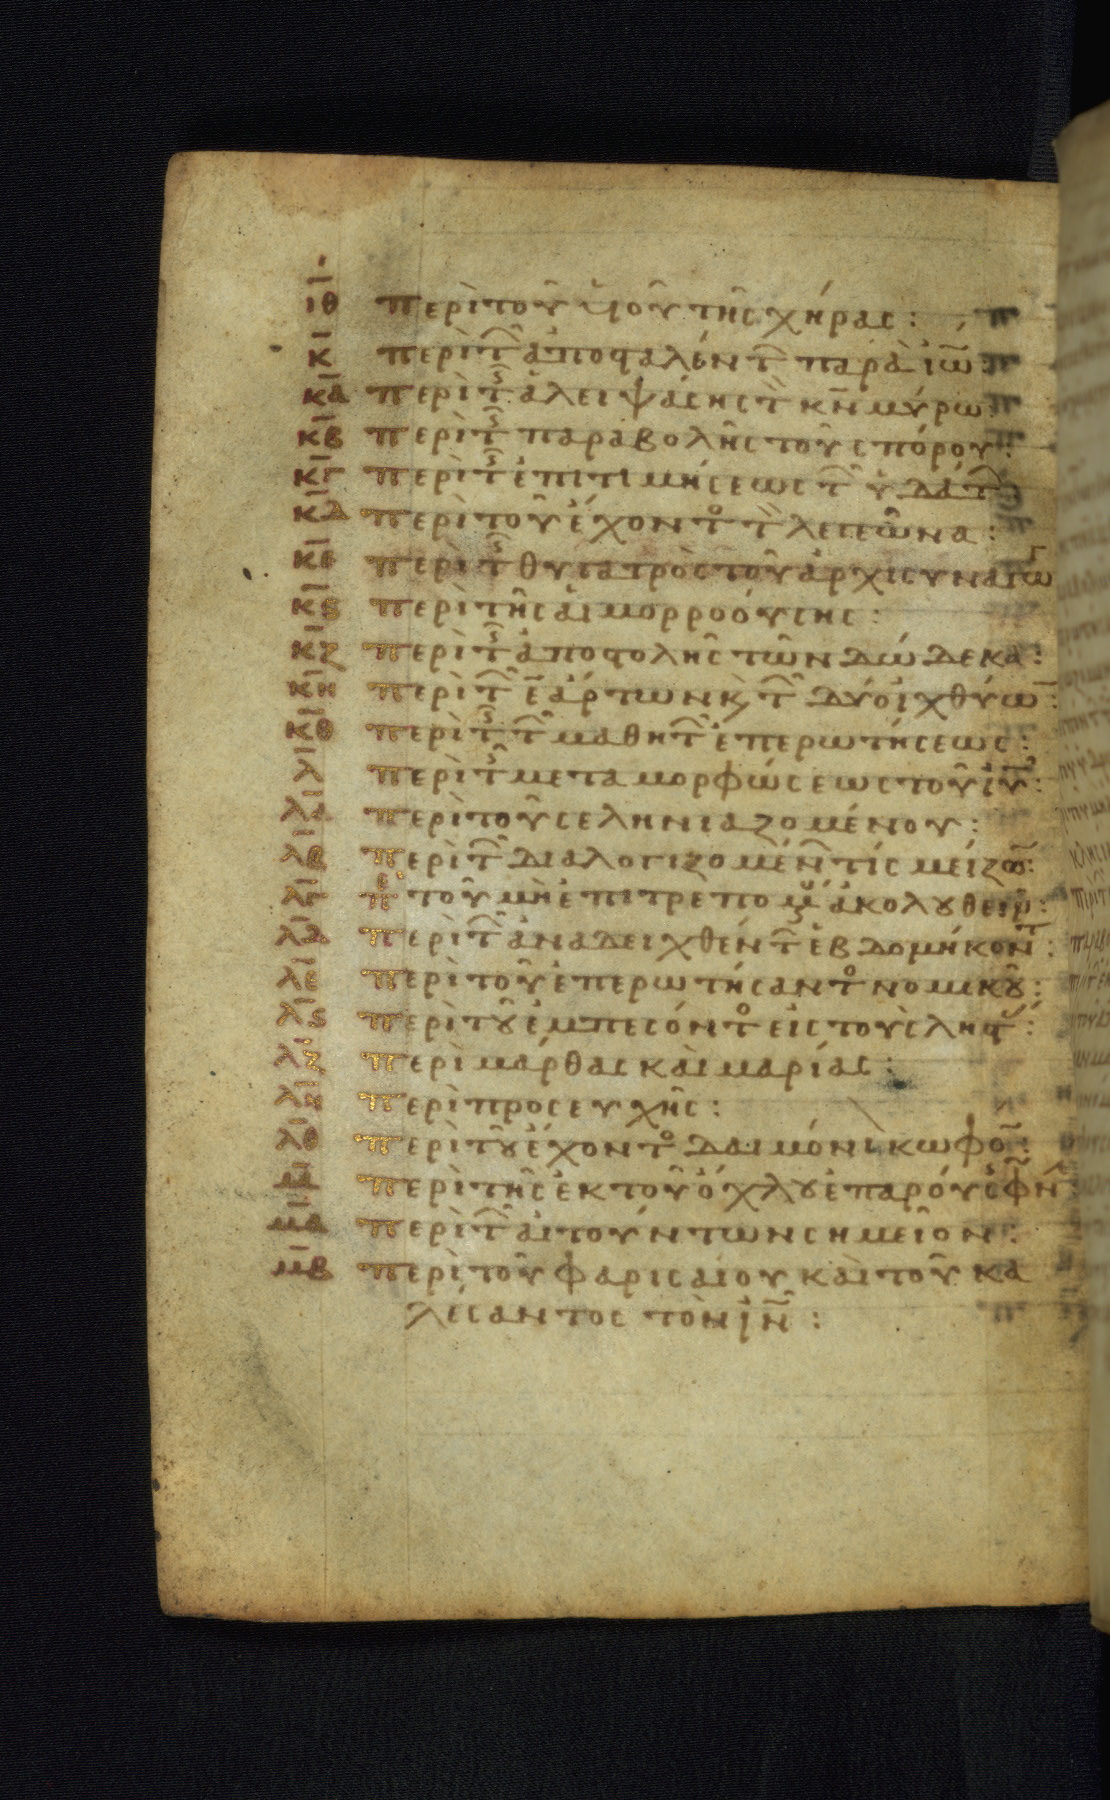 ιθ περὶ τοῦ υἱοῦ τῆς χήρας :
κ περὶ τ̑ ἀποσταλέντ̑ παρὰ ἰω̅ :
κα περὶ τ̑ ἀλειψάσης τ̀ κ̅ν̅ μύρω :
κβ περὶ τ̑ παραβολῆς τοῦ σπόρου :
κγ περὶ τ̑ ἐπιτιμήσεως τ̑ ὑδάτ̑
κδ περὶ τοῦ ἔχοντο τ̀ λεγεῶνα :
κε περὶ τ̑ θυγατρὸς τοῦ ἀρχισυναγω
κϛ περὶ τῆς αἱμορροούσης :
κζ περὶ τ̑ ἀποστολῆς τῶν δώδεκα :
κη περὶ τ̑ ε̅ ἄρτων κ̀ τ̑ δύο ἰχθύω̅ :
κθ περὶ τ̑ τ̑ μαθητ̑ ἐπερωτήσεως :
λ περὶ τ̑ μεταμορφώσεως τοῦ ι̅υ̅ :
λα περὶ τοῦ σεληνιαζομένου :
λβ περὶ τ̑ διαλογιζομέν̑ τίς μείζω̅ :
λγ πε τοῦ μὴ ἐπιτρεπομ̅ ἀκολȣθεῖν :
λδ περὶ τ̑ ἀναδειχθέντ̑ ἑβδομήκοντ :
λε περὶ τοῦ ἐπερωτήσαντο νομικȣ̑ :
λϛ περὶ τȣ̑ ἐμπεσόντο εἰς τοὺς λῃστ :
λζ περὶ μάρθας καὶ μαρίας :
λη περὶ προσευχῆς :
λθ περὶ τȣ̑ ἔχοντο δαιμόνι κωφο̅ :
μ περὶ τῆς ἐκ τοῦ ὄχλȣ ἐπαρούσ φ̅η̅
μα περὶ τ̑ αἰτούντων σημεῖον :
μβ περὶ τοῦ φαρισαίου καὶ τοῦ κα
λέσαντος τὸν ι̅ν̅ :